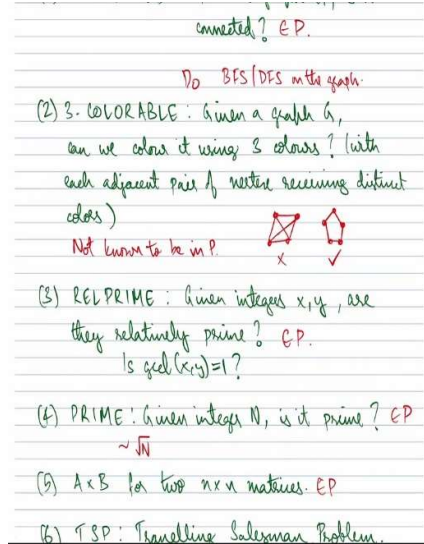 connected? ∈ P.
Do BFS/DFS on the graph.
(2) 3-COLORABLE : Given a graph G,
can we colour it using 3 colours? (with
each adjacent pair of vertex receiving distinct
colors)
Not known to be in P.
× ✓
(3) RELPRIME : Given integers x, y, are
they relatively prime? ∈ P.
Is gcd(x,y)=1?
(4) PRIME : Given integer N, is it prime? ∈ P
~ √N
(5) A×B for two n×n matrices. ∈ P
(6) TSP : Travelling Salesman Problem.